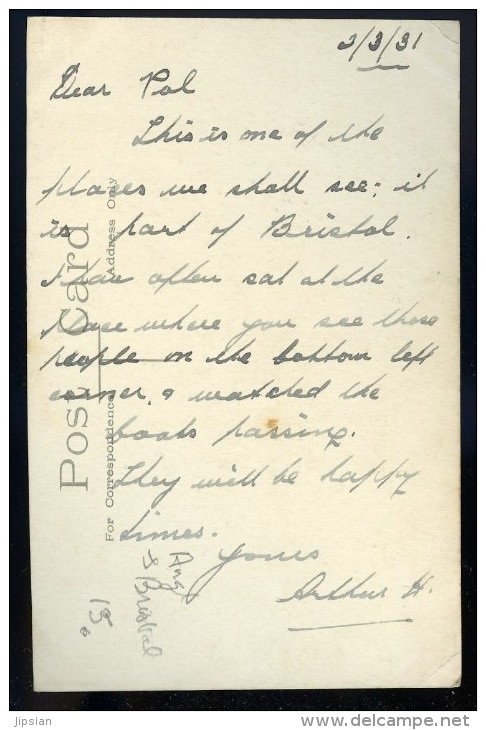 3/3/31
Dear Pol
This is one of the
places we shall see; it
is part of Bristol.
I have often sat at the
place where you see those
people on the bottom left
corner, & watched the
boats passing.
They will be happy
times.
Yours
Arthur H.
Post Card
For Correspondence
Address Only
Ang
& Bristol
jipsian
http://www.delcampe.net